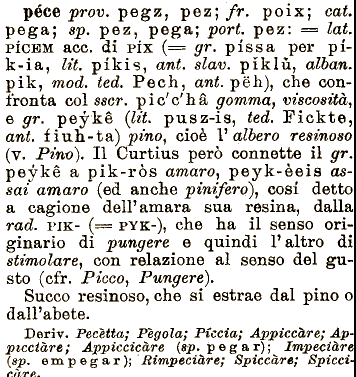 péce prov. pegz, pez; fr. poix; cat.
pega; sp. pez, pega; port. pez: = lat.
PÍCEM acc. di PÍX (= gr. píssa per pí-
k-ia, lit. píkis, ant. slav. piklŭ, alban.
pik, mod. ted. Pech, ant. pëh), che con-
fronta col sscr. pic'c'hâ gomma, viscosità,
e gr. peýkê (lit. pusz-is, ted. Fickte,
ant. fiuh-ta) pino, cioè l'albero resinoso
(v. Pino). Il Curtius però connette il gr.
peýkê a pik-ròs amaro, peyk-èeis as-
sai amaro (ed anche pinifero), cosí detto
a cagione dell'amara sua resina, dalla
rad. PIK- (= PYK-), che ha il senso ori-
ginario di pungere e quindi l'altro di
stimolare, con relazione al senso del gu-
sto (cfr. Picco, Pungere).
Succo resinoso, che si estrae dal pino o
dall'abete.
Deriv. Pecètta; Pègola; Píccia; Appiccàre; Ap-
picciàre; Appiccicàre (sp. pegar); Impeciàre
(sp. empegar); Rimpeciàre; Spiccàre; Spicci-
càre.